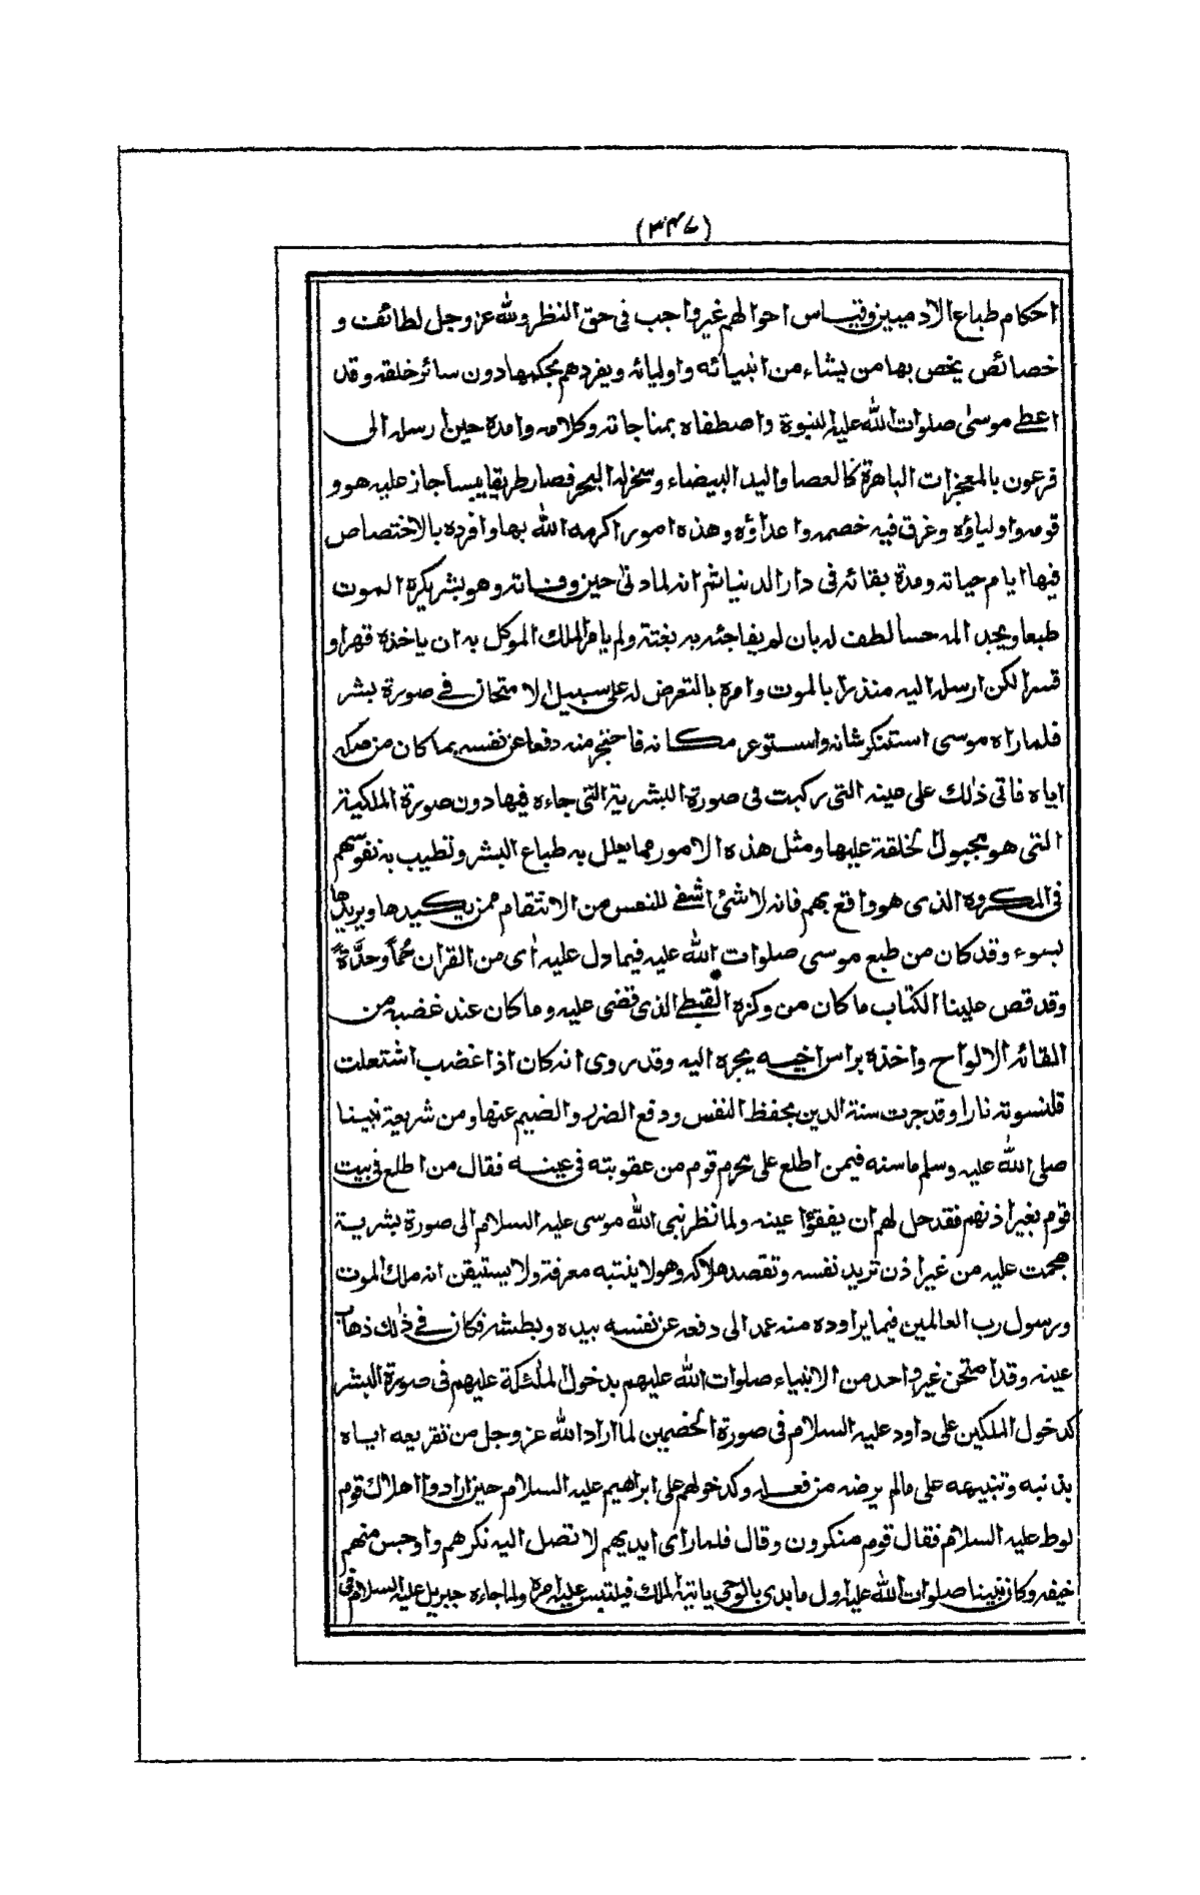 (۳۴۷)
احكام طباع الادميين وقياس احوالهم غير واجب فى حق النظر ولله عز وجل لطائف و
خصائص يخص بها من يشاء من انبيائه واوليائه ويفردهم بحكمها دون سائر خلقه وقد
اعطى موسى صلوات الله عليه النبوة واصطفاه بمناجاته وكلامه وامده حين ارسله الى
فرعون بالمعجزات الباهرة كالعصا واليد البيضاء وسخر له البحر فصار طريقا يبسا جاز عليه هو و
قومه واولياؤه وغرق فيه خصمه واعداؤه وهذه امور اكرمه الله بها وافرده بالاختصاص
فيها ايام حياته ومدة بقائه فى دار الدنيا ثم انه لما دنى حين وفاته وهو بشر يكره الموت
طبعا ويجد المه حسا لطف له بان لم يفاجئه به بغتة ولم يامر الملك الموكل به ان ياخذه قهرا و
قسرا لكن ارسله اليه منذرا بالموت وامره بالتعرض له على سبيل الامتحان فى صورة بشر
فلما راه موسى استنكر شانه واستوعر مكانه فاحتجر منه دفعا عن نفسه بما كان من صكه
اياه فاتى ذلك على عينه التى ركبت فى صورة البشرية التى جاءه فيها دون صورة الملكية
التى هو مجبول الخلقة عليها ومثل هذه الامور مما يعلل به طباع البشر وتطيب به نفوسهم
فى المكروه الذى هو واقع بهم فانه لا شئ اشفى للنفس من الانتقام ممن يكيدها ويريدها
بسوء وقد كان من طبع موسى صلوات الله عليه فيما دل عليه اى من القران حُمّاً وحدَّةً
وقد قص علينا الكتاب ما كان من وكزه القبطى الذى قضى عليه وما كان عند غضبه من
القائه الالواح واخذه براس اخيه يجره اليه وقد روى انه كان اذا غضب اشتعلت
قلنسوته نارا وقد جرت سنة الدين بحفظ النفس ودفع الضرر والضيم عنها ومن شريعة نبينا
صلى الله عليه وسلم ما سنه فيمن اطلع على محرم قوم من عقوبته فى عينه فقال من اطلع فى بيت
قوم بغير اذنهم فقد حل لهم ان يفقؤا عينه ولما نظر نبى الله موسى عليه السلام الى صورة بشرية
هجمت عليه من غير اذن تريد نفسه وتقصد هلاكه وهو لا يثبته معرفة ولا يستيقن انه ملك الموت
ورسول رب العالمين فيما يراوده منه عمد الى دفعه عن نفسه بيده وبطشه فكان فى ذلك ذهاب
عينه وقد امتحن غير واحد من الانبياء صلوات الله عليهم بدخول الملئكة عليهم فى صورة البشر
كدخول الملكين على داود عليه السلام فى صورة الخصمين لما اراد الله عز وجل من تقريعه اياه
بذنبه وتنبيهه على مالم يرضه من فعله وكدخولهم على ابراهيم عليه السلام حين ارادوا اهلاك قوم
لوط عليه السلام فقال قوم منكرون وقال فلما راى ايديهم لا تصل اليه نكرهم واوجس منهم
خيفه وكان نبينا صلوات الله عليه اول ما بدى بالوحى ياتيه الملك فيلتبس عليه امره ولما جاءه جبريل عليه السلام فى